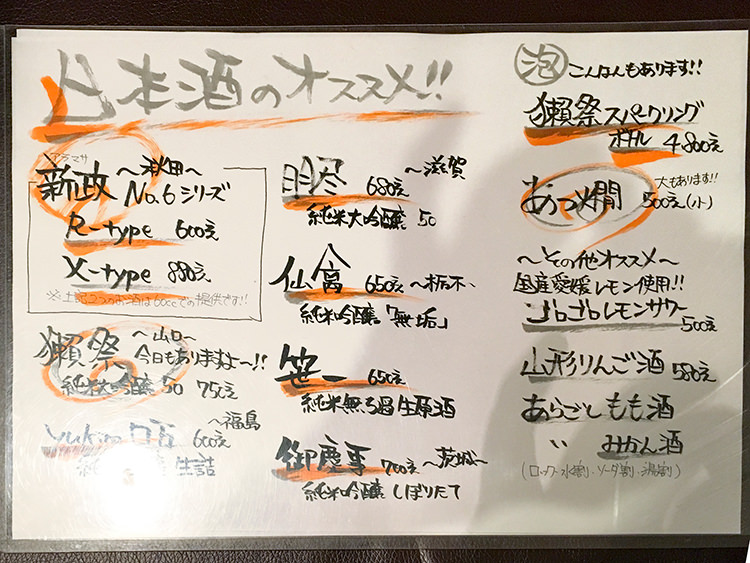 日本酒のオススメ!!
アラマサ
新政 〜秋田〜
No.6シリーズ
R-type 600円
X-type 880円
※上記2つのお酒は60ccでの提供です!!
獺祭 〜山口〜
今日もありますよ〜!!
純米大吟醸 50 750円
〜福島
yukiro 600円
生詰
〜滋賀
680円
純米大吟醸 50
仙禽 650円 〜栃木
純米吟醸「無垢」
笹一 650円
純米無ろ過生原酒
御慶事 700円 〜茨城〜
純米吟醸 しぼりたて
泡 こんなんもあります!!
獺祭スパークリング
ボトル 4,800円
大もあります!!
あつ燗 500円(小)
〜その他オススメ〜
国産愛媛レモン使用!!
ゴロゴロレモンサワー
500円
山形りんご酒 580円
あらごしもも酒
〃 みかん酒
(ロック・水割・ソーダ割・湯割)